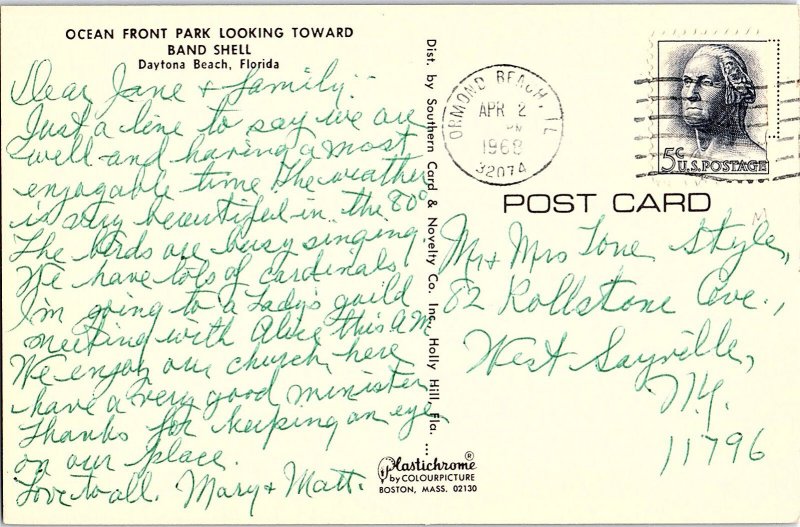 OCEAN FRONT PARK LOOKING TOWARD
BAND SHELL
Daytona Beach, Florida
Dear Jane + family:
Just a line to say we are
well and having a most
enjoyable time The weather
is very beautiful in the 80°
The birds are busy singing,
We have lots of cardinals
I'm going to a Lady's guild
meeting with Alice this A.M.
We enjoy our church here
have a very good minister
Thanks for keeping an eye
on our place
Love to all. Mary + Matt.
Dist. by Southern Card & Novelty Co. Inc., Holly Hill, Fla. ...
Plastichrome®
by COLOURPICTURE
BOSTON, MASS. 02130
ORMOND BEACH,
APR 2
PM
1968
32074
5¢ U.S. POSTAGE
POST CARD
Mr + Mrs Style,
82 Rollstone Ave.,
West Sayville,
N.Y.
11796